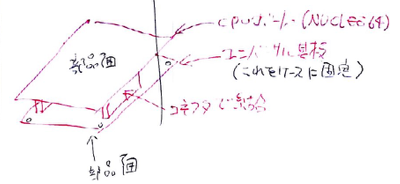 CPUボード (NUCLEO64)
ユニバーサル基板
(これをケースに固定)
部品面
コネクタで結合
部品面